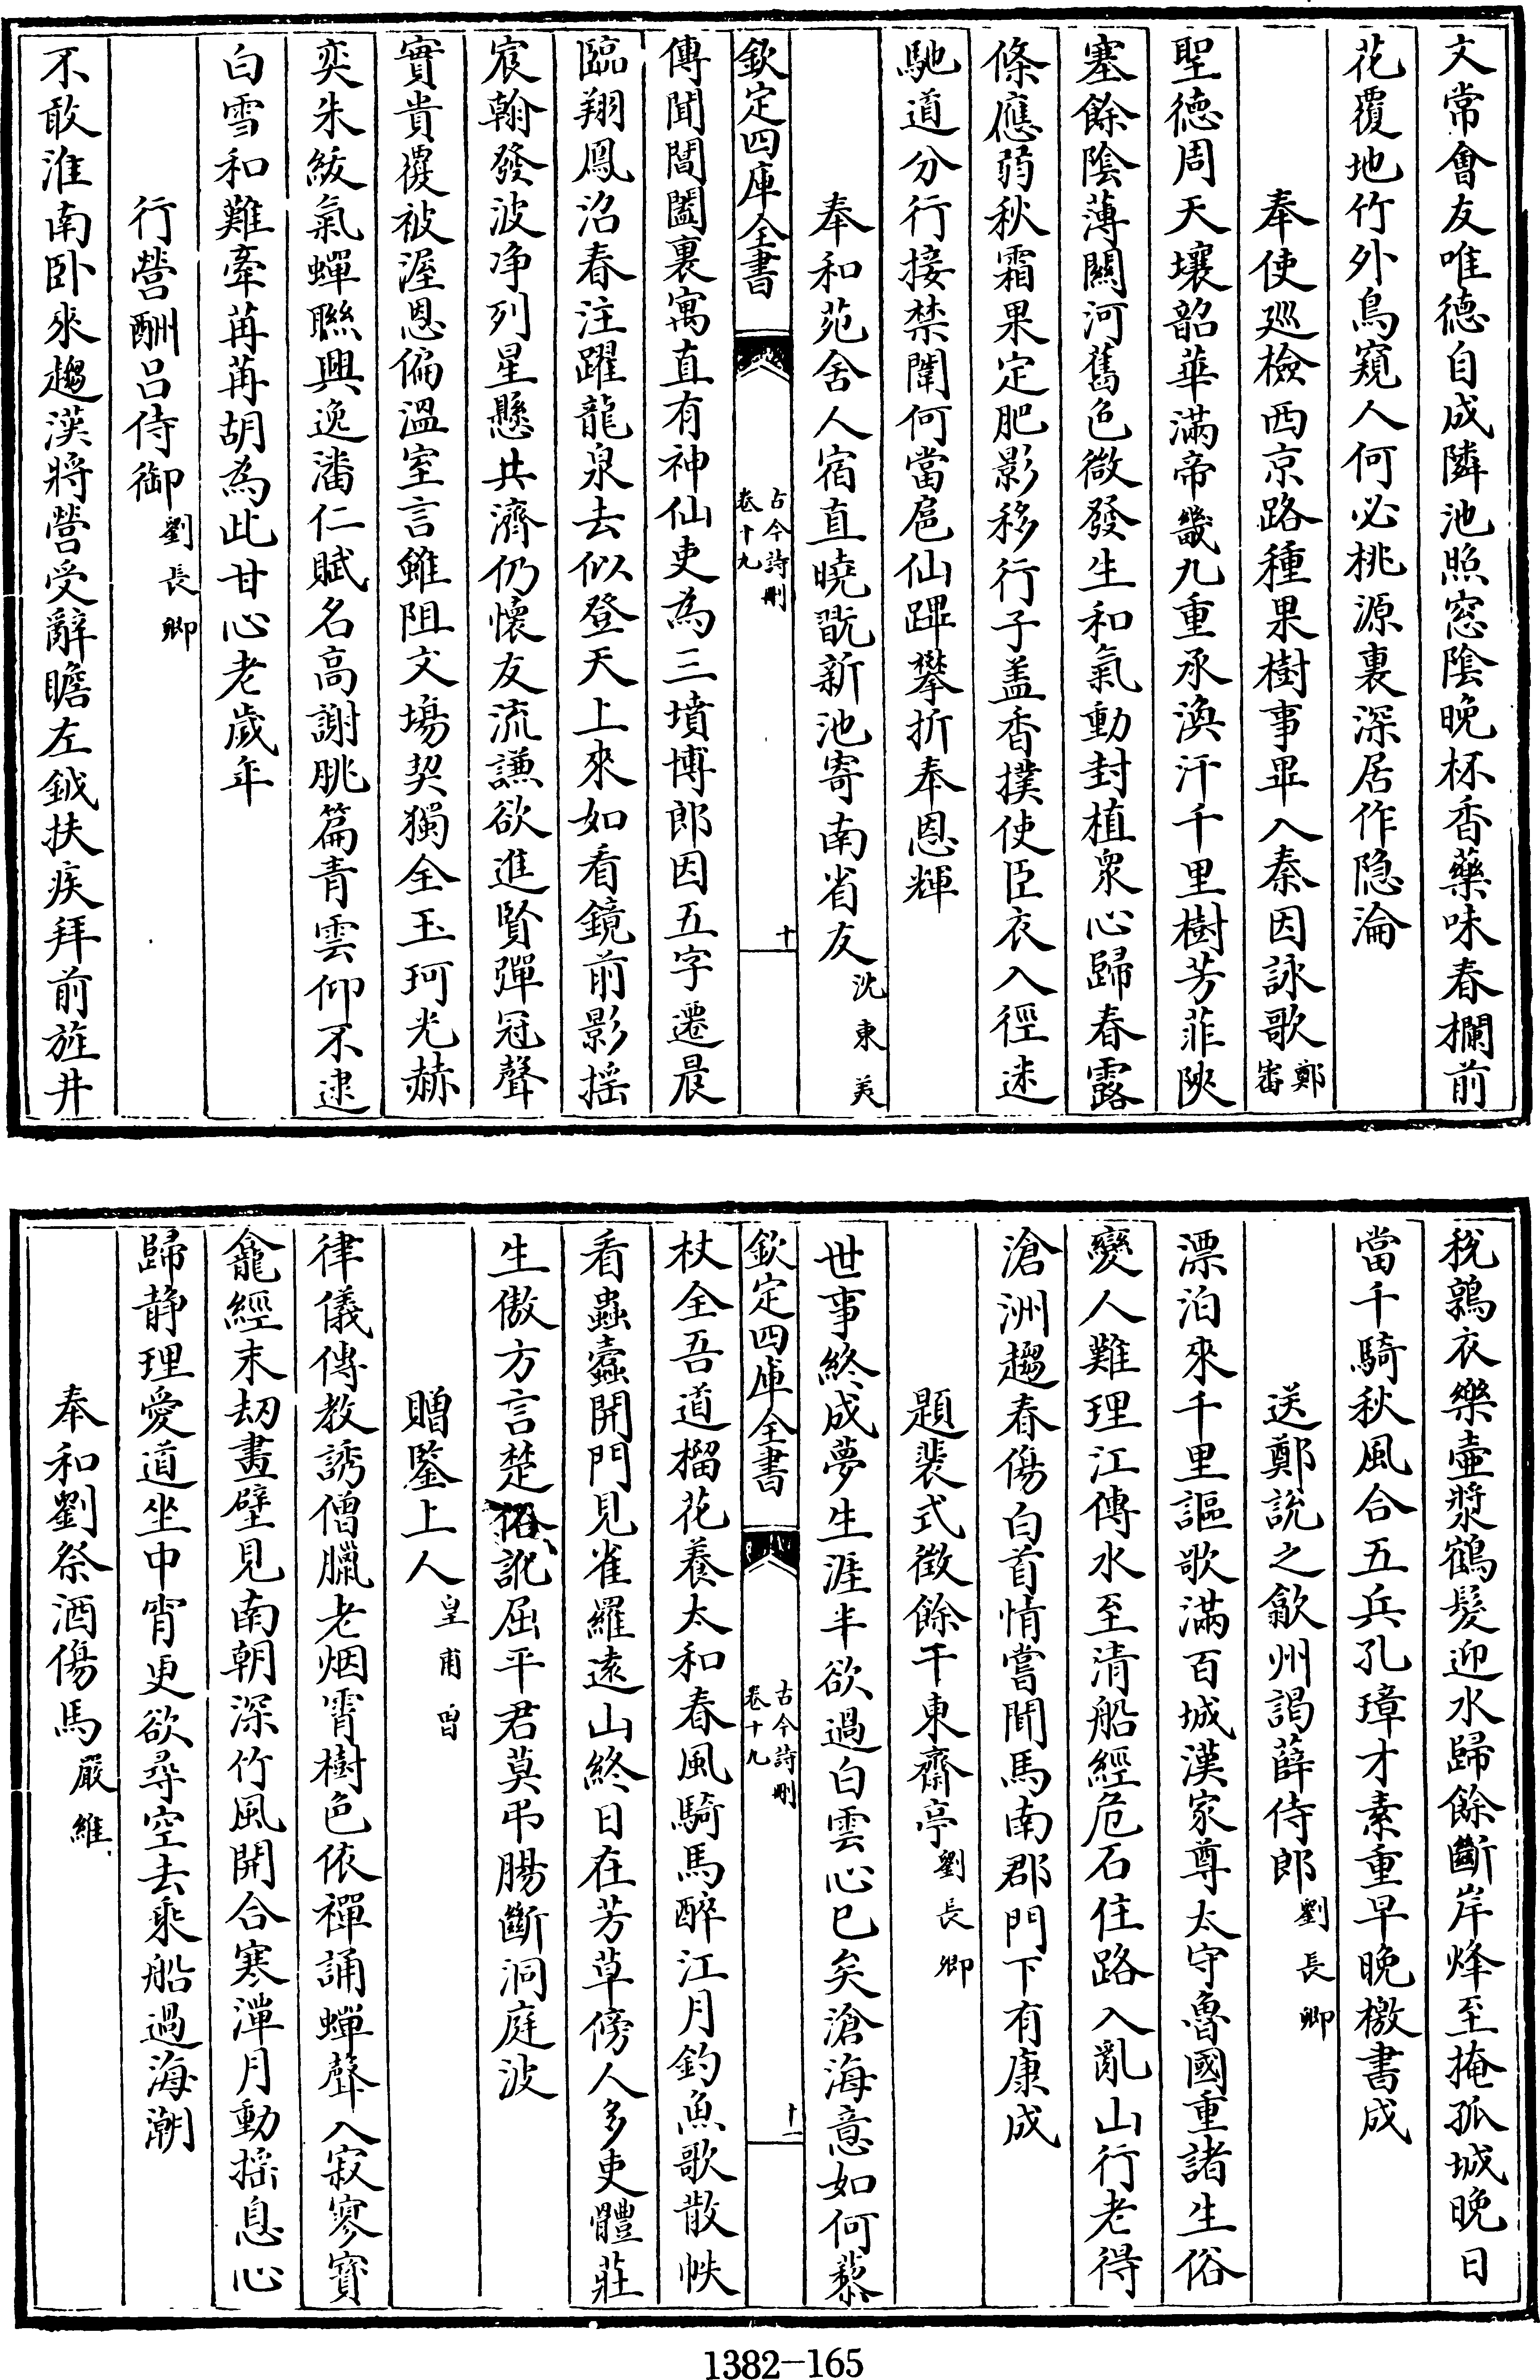 文常會友唯德自成隣池照窓陰晚杯香藥味春欄前
花覆地竹外鳥窺人何必桃源裏深居作隐淪
奉使廵檢西京路種果樹事畢入秦因詠歌鄭審
聖德周天壤韶華滿帝畿九重承渙汗千里樹芳菲陜
塞餘陰薄關河舊色微發生和氣動封植衆心歸春露
條應弱秋霜果定肥影移行子盖香撲使臣衣入徑迷
馳道分行接禁闈何當扈仙蹕攀折奉恩輝
奉和苑舍人宿直曉翫新池寄南省友沈東美
欽定四庫全書
古今詩刪
卷十九
十
傳聞閶闔裏寓直有神仙史為三墳博郎因五字遷晨
臨翔鳳沼春注躍龍泉去似登天上來如看鏡前影揺
宸翰發波净列星懸共濟仍懷友流謙欲進賢彈冠聲
實貴覆被渥恩偏溫室言雖阻文場契獨全玉珂光赫
奕朱紱氣蟬聯興逸潘仁賦名高謝朓篇青雲仰不逮
白雪和難牽苒苒胡為此甘心老歲年
行營酬吕侍御劉長卿
不敢淮南卧來趨漢將營受辭瞻左鉞扶疾拜前旌井
稅鶉衣樂壷漿鶴髮迎水歸餘斷岸烽至掩孤城晚日
當千騎秋風合五兵孔璋才素重早晚檄書成
送鄭說之歙州謁薛侍郎劉長卿
漂泊來千里謳歌滿百城漢家尊太守魯國重諸生俗
變人難理江傳水至清船經危石住路入亂山行老得
滄洲趨春傷白首情嘗聞馬南郡門下有康成
題裴式徵餘干東齋亭劉長卿
世事終成夢生涯半欲過白雲心已矣滄海意如何藜
欽定四庫全書
古今詩刪
卷十九
十一
杖全吾道榴花養太和春風騎馬醉江月釣魚歌散帙
看蟲蠧開門見雀羅遠山終日在芳草傍人多吏體莊
生傲方言楚俗訛屈平君莫弔腸斷洞庭波
贈鑒上人皇甫曾
律儀傳教誘僧臘老烟霄樹色依禪誦蟬聲入寂寥寳
龕經末劫畫壁見南朝深竹風開合寒潭月動揺息心
歸静理愛道坐中宵更欲尋空去乘船過海潮
奉和劉祭酒傷馬嚴維
1382-165